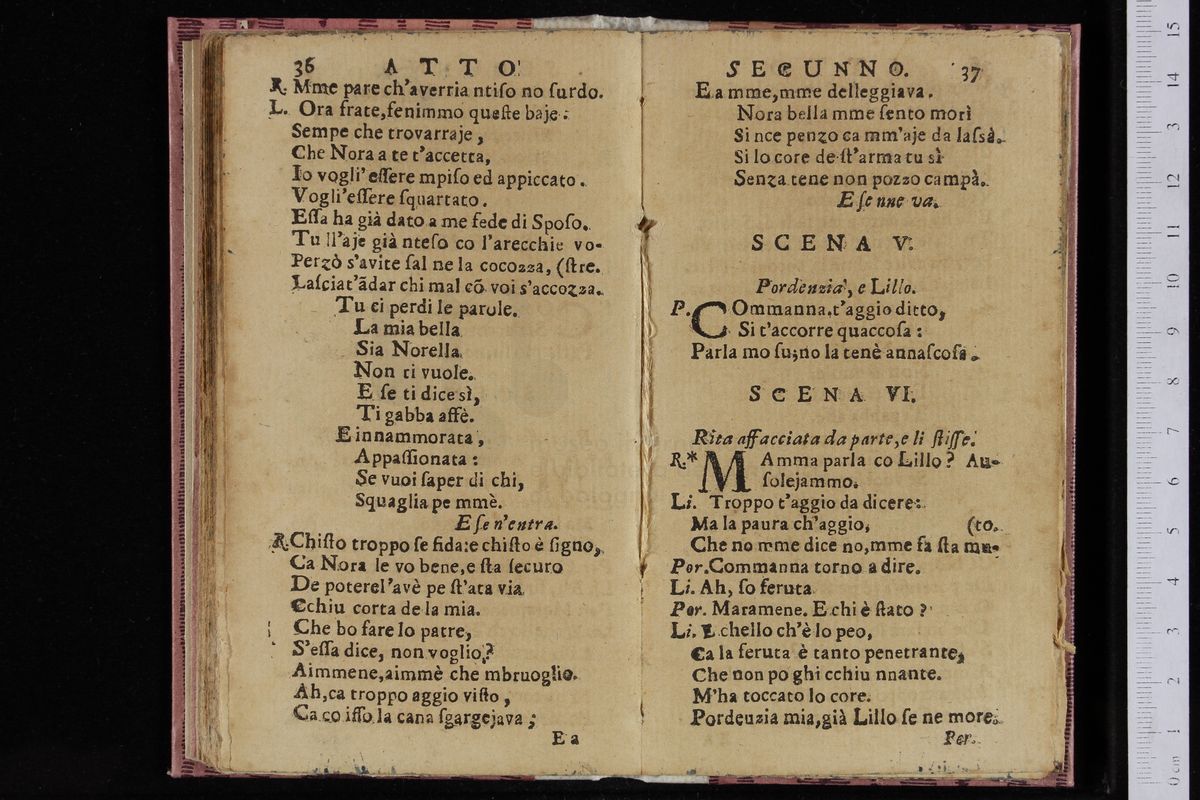 36 ATTO
R. Mme pare ch'averria ntiſo no ſurdo.
L. Ora frate,fenimmo queſte baje:
Sempe che trovarraje,
Che Nora a te t'accetta,
Io vogli'eſſere mpiſo ed appiccato.
Vogli'eſſere ſquartato.
Eſſa ha già dato a me fede di Spoſo.
Tu ll'aje già nteſo co l'arecchie vo-
Perzò s'avite ſal ne la cocozza, (ſtre.
Laſciat'ãdar chi mal cõ voi s'accozza.
Tu ci perdi le parole.
La mia bella
Sia Norella
Non ti vuole.
E ſe ti dice sì,
Ti gabba affè.
E innammorata,
Appaſſionata:
Se vuoi ſaper di chi,
Squaglia pe mmè.
E ſe n'entra.
R. Chiſto troppo ſe fida:e chiſto è ſigno,
Ca Nora le vo bene,e ſta ſecuro
De poterel'avè pe ſt'ata via
Cchiu corta de la mia.
Che bo fare lo patre,
S'eſſa dice, non voglio?
Aimmene,aimmè che mbruoglio.
Ah,ca troppo aggio viſto,
Ca co iſſo la cana ſgargejava;
E a
SECUNNO. 37
E a mme,mme delleggiava.
Nora bella mme ſento morì
Si nce penzo ca mm'aje da laſsà.
Si lo core de ſt'arma tu sì
Senza tene non pozzo campà.
E ſe nne va.
SCENA V.
Pordenzia, e Lillo.
P. COmmanna.t'aggio ditto,
Si t'accorre quaccoſa:
Parla mo ſu;no la tenè annaſcoſa.
SCENA VI.
Rita affacciata da parte,e li ſtiſſe.
R.* MAmma parla co Lillo? Au-
ſolejammo.
Li. Troppo t'aggio da dicere:
Ma la paura ch'aggio, (to.
Che no mme dice no,mme fa ſta mu-
Por. Commanna torno a dire.
Li. Ah, ſo feruta
Por. Maramene. E chi è ſtato?
Li. E chello ch'è lo peo,
Ca la feruta è tanto penetrante,
Che non po ghi cchiu nnante.
M'ha toccato lo core.
Pordeuzia mia,già Lillo ſe ne more.
Por.
15
14
13
12
11
10
9
8
7
6
5
4
3
2
1
0 cm